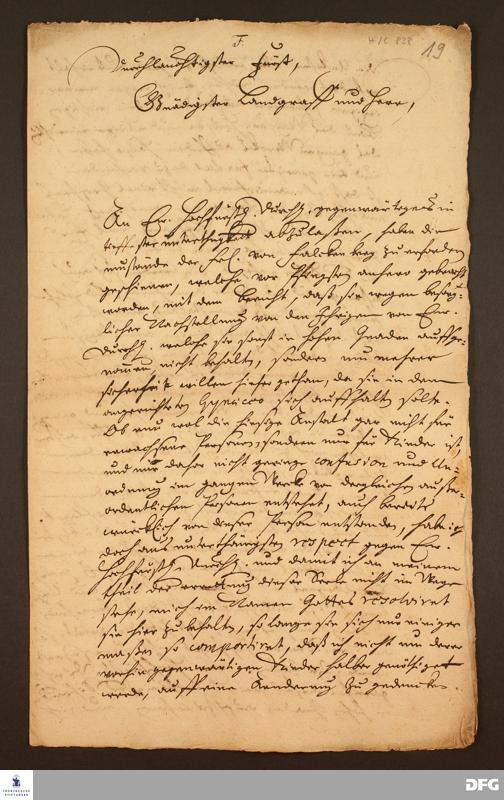 F.
H/C 828
19
Durchlauchtigster Fürst,
Gnädigster Landgraff und Herr,
An Ew. Hochfürstl. Durchl. gegenwärtiges in
tieffster unterthänigkeit abzulaßen, haben die
umstände der Frl. von Falckenberg zu erfordern
geschienen, welche vor Pfingsten anhero gebracht
worden, mit dem Bericht, daß sie wegen besorg-
licher Nachstellung von den Ihrigen von Ew.
Durchl. welche sie sonst in hohen Gnaden auffge-
nommen, nicht behalten, sondern nun mehrer
sicherheit willen hieher gethan, da sie in dem
angerichteten Gynaeceo sich auffhalten solte.
Ob nun wol die hiesige Anstalt gar nicht für
erwachsene Personen, sondern nur für Kinder ist,
und mir daher nicht geringe confusion und Un-
ordnung im gantzen Wercke von dergleichen ausser-
ordentlichen Personen entstehet, auch bereits
würcklich von dieser Person entstanden, habe ich
doch aus unterthänigsten respect gegen Ew.
Hochfürstl. Durchl. und damit ich an meinem
theil der errettung dieser Seele nicht im Wege
stehe, mich im Namen Gottes resolviret
sie hier zu behalten, so lange sie sich nur einiger
maßen so comportiret, daß ich nicht um derer
vorhin gegenwärtigen Kinder halber genöthiget
werde, auff eine Aenderung zu gedencken.
FRANCKESCHE STIFTUNGEN
DFG